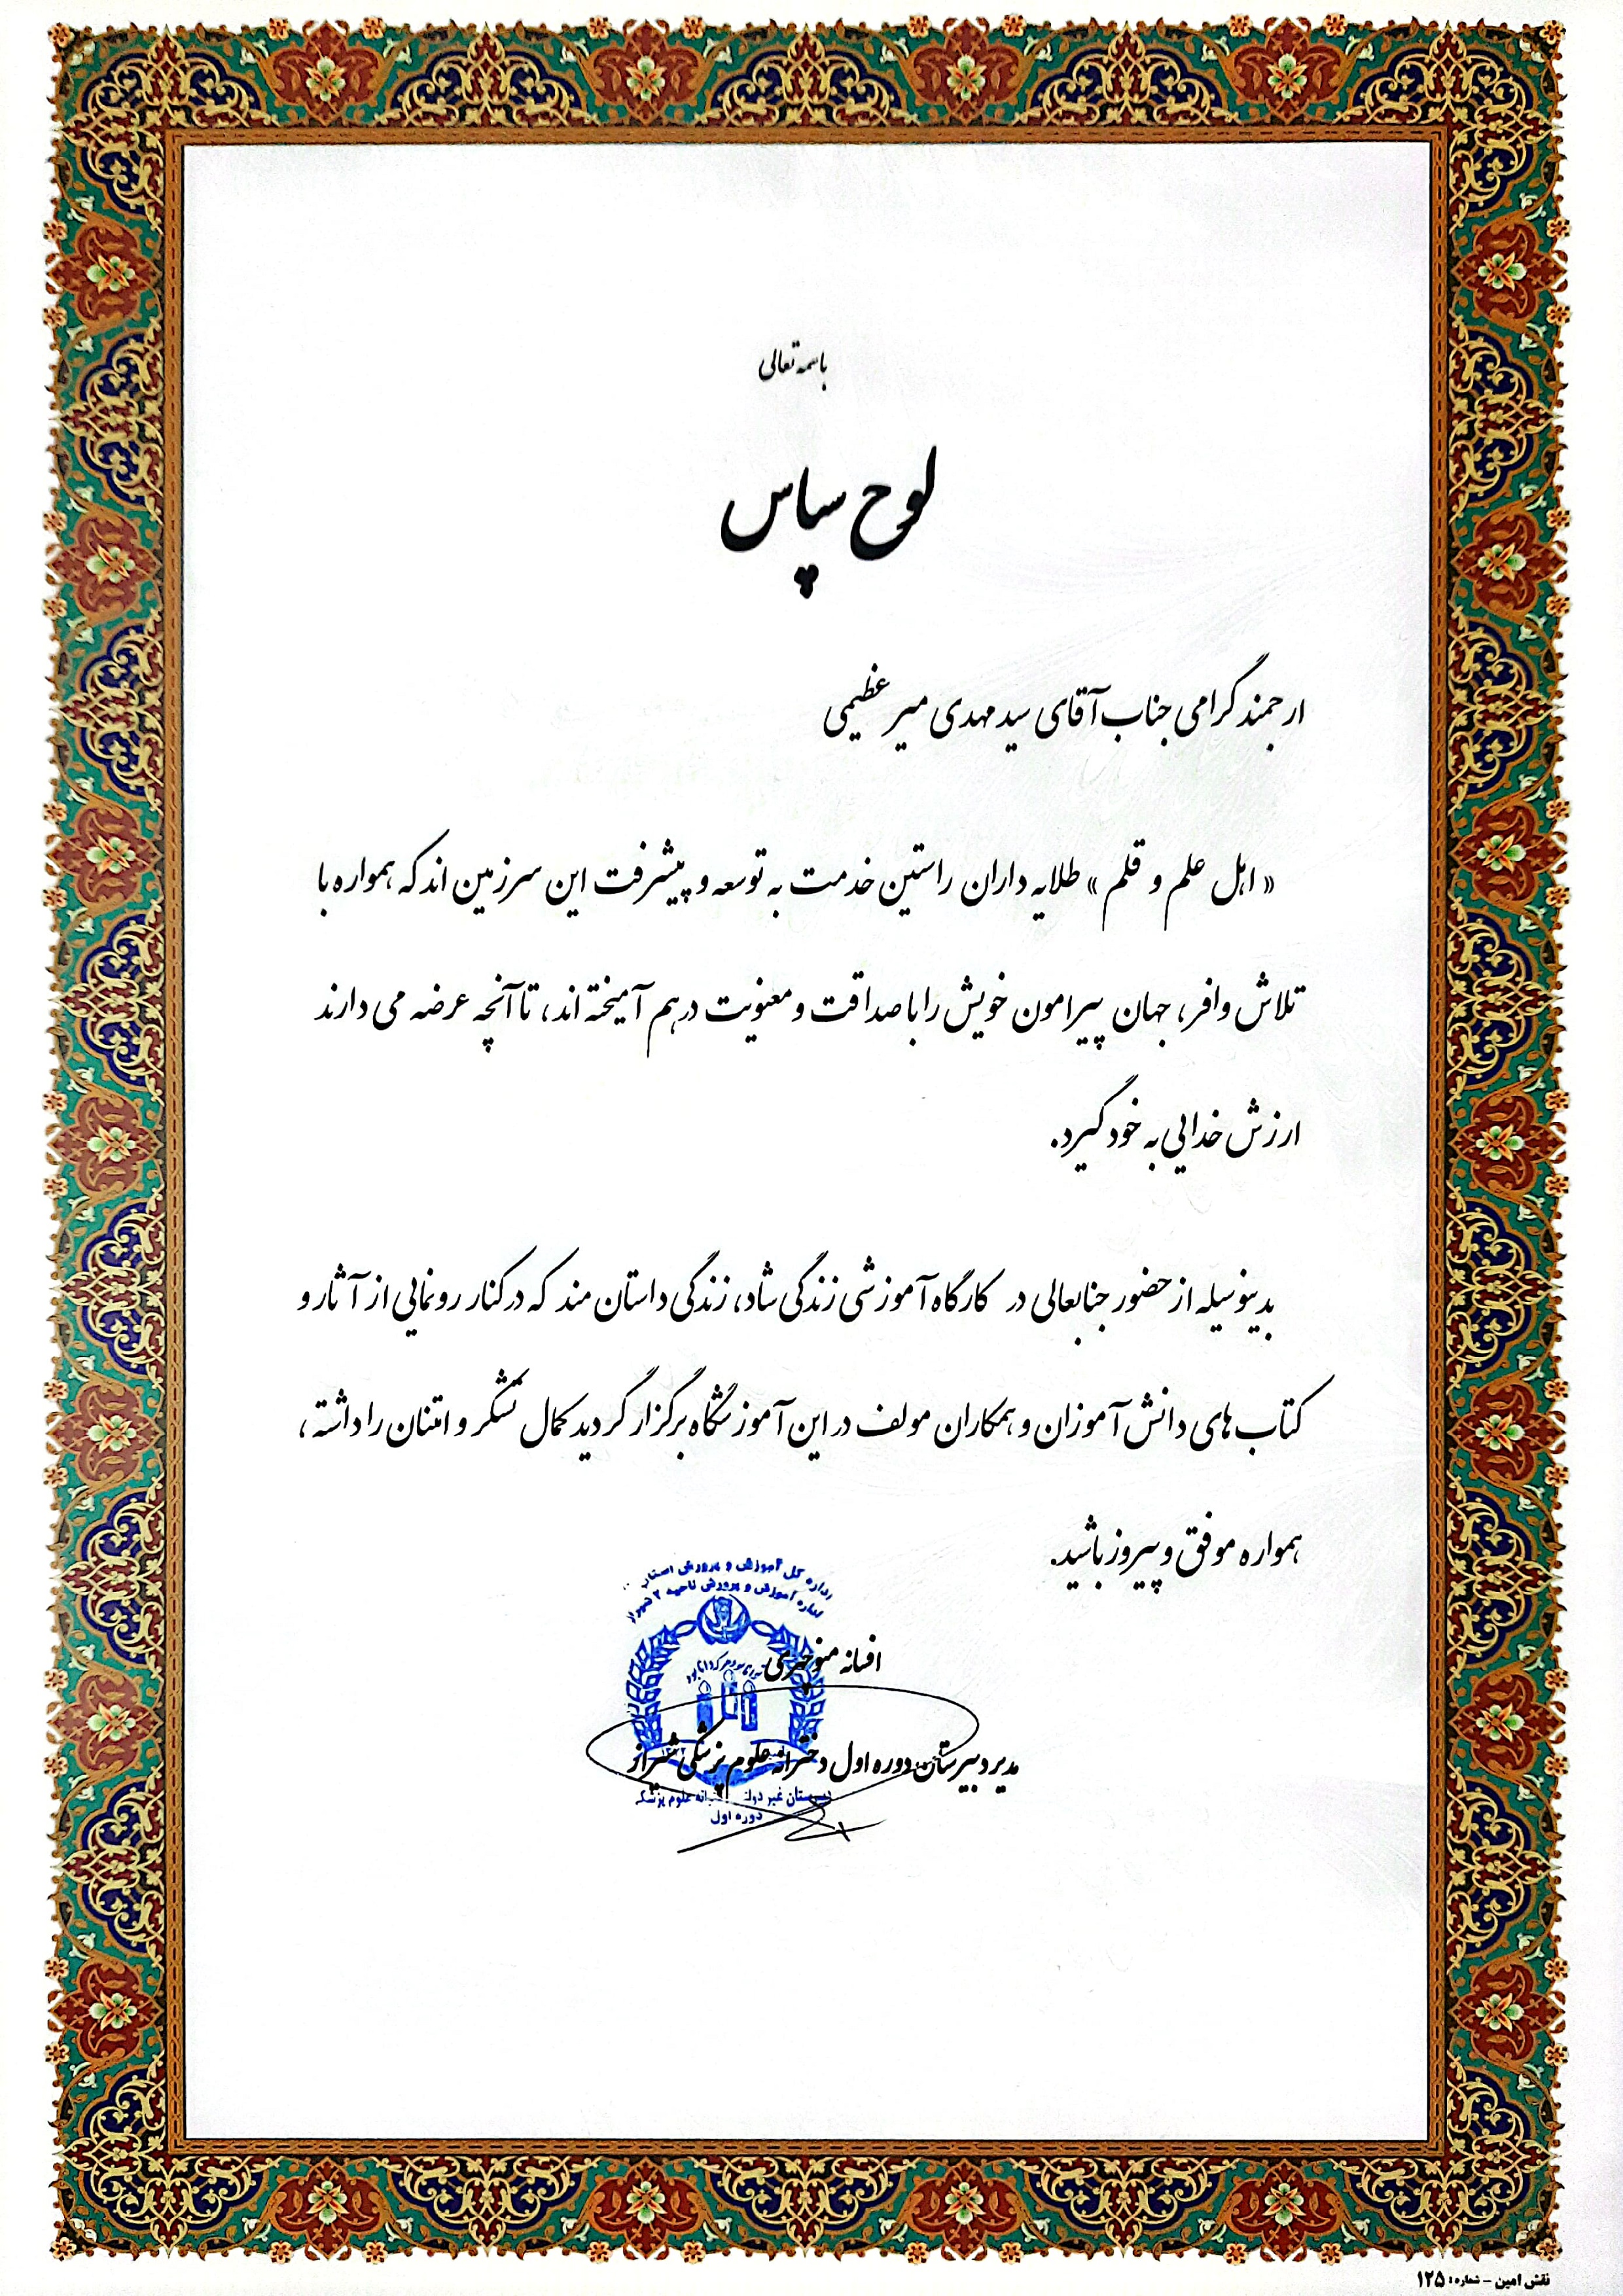 باسمه تعالی
لوح سپاس
ارجمند گرامی جناب آقای سید مهدی میر عظیمی
« اهل علم و قلم » طلایه داران راستین خدمت به توسعه و پیشرفت این سرزمین اند که همواره با
تلاش وافر، جهان پیرامون خویش را با صداقت و معنویت در هم آمیخته اند، تا آنچه عرضه می دارند
ارزش خدایی به خود گیرد.
بدینوسیله از حضور جنابعالی در کارگاه آموزشی زندگی شاد، زندگی داستان مند که در کنار رونمایی از آثار و
کتاب های دانش آموزان و همکاران مولف در این آموزشگاه برگزار گردید کمال تشکر و امتنان را داشته،
همواره موفق و پیروز باشید.
اداره کل آموزش و پرورش استان
اداره آموزش و پرورش ناحیه ۲ شیراز
افسانه منوچهری
مدیر دبیرستان دوره اول دخترانه علوم پزشکی شیراز
دبیرستان غیر دولتی دخترانه علوم پزشکی
دوره اول
نقش امین - شماره: ۱۲۵